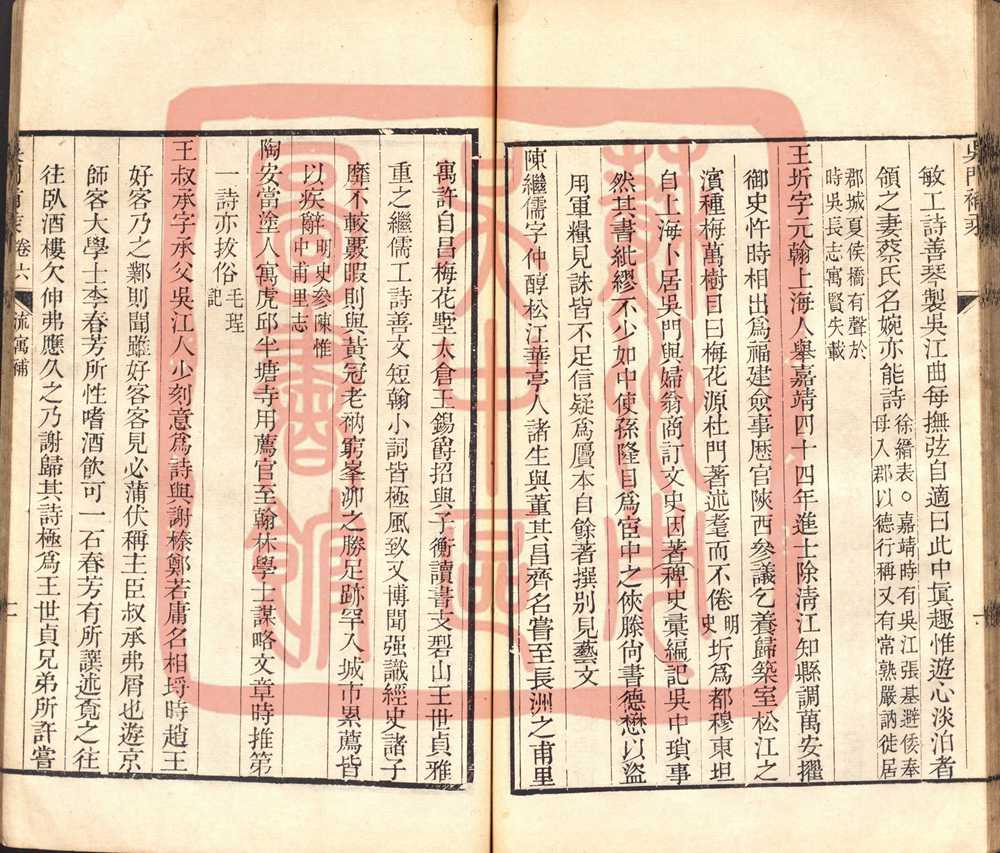 敏工詩善琴製吳江曲每撫弦自適曰此中眞趣惟遊心淡泊者
領之妻蔡氏名婉亦能詩
徐縉表○嘉靖時有吳江張基避倭奉
母入郡以德行稱又有常熟嚴訥徙居
郡城夏侯橋有聲於
時吳長志寓賢失載
王圻字元翰上海人舉嘉靖四十四年進士除淸江知縣調萬安擢
御史忤時相出爲福建僉事歷官陝西參議乞養歸築室松江之
濱種梅萬樹目曰梅花源杜門著述耄而不倦
明
史
圻爲都穆東坦
自上海卜居吳門與婦翁商訂文史因著稗史彙編記吳中瑣事
然其書紕繆不少如中使孫隆目爲宦中之俠滕尙書德懋以盜
用軍糧見誅皆不足信疑爲贋本自餘著撰別見藝文
陳繼儒字仲醇松江華亭人諸生與董其昌齊名嘗至長洲之甫里
寓許自昌梅花墅太倉王錫爵招與子衡讀書支硎山王世貞雅
重之繼儒工詩善文短翰小詞皆極風致又博聞强識經史諸子
靡不較覈暇則與黃冠老衲窮峯泖之勝足跡罕入城市累薦皆
以疾辭
明史參陳惟
中甫里志
陶安當塗人寓虎邱半塘寺用薦官至翰林學士謀略文章時推第
一詩亦拔俗
毛珵
記
王叔承字承父吳江人少刻意爲詩與謝榛鄭若庸名相埒時趙王
好客乃之鄴則聞雖好客客見必蒲伏稱主臣叔承弗屑也遊京
師客大學士李春芳所性嗜酒飮可一石春芳有所譔述覔之往
往臥酒樓欠伸弗應久之乃謝歸其詩極爲王世貞兄弟所許嘗
卷六
流寓補
蘇州市
吳中區
圖書館